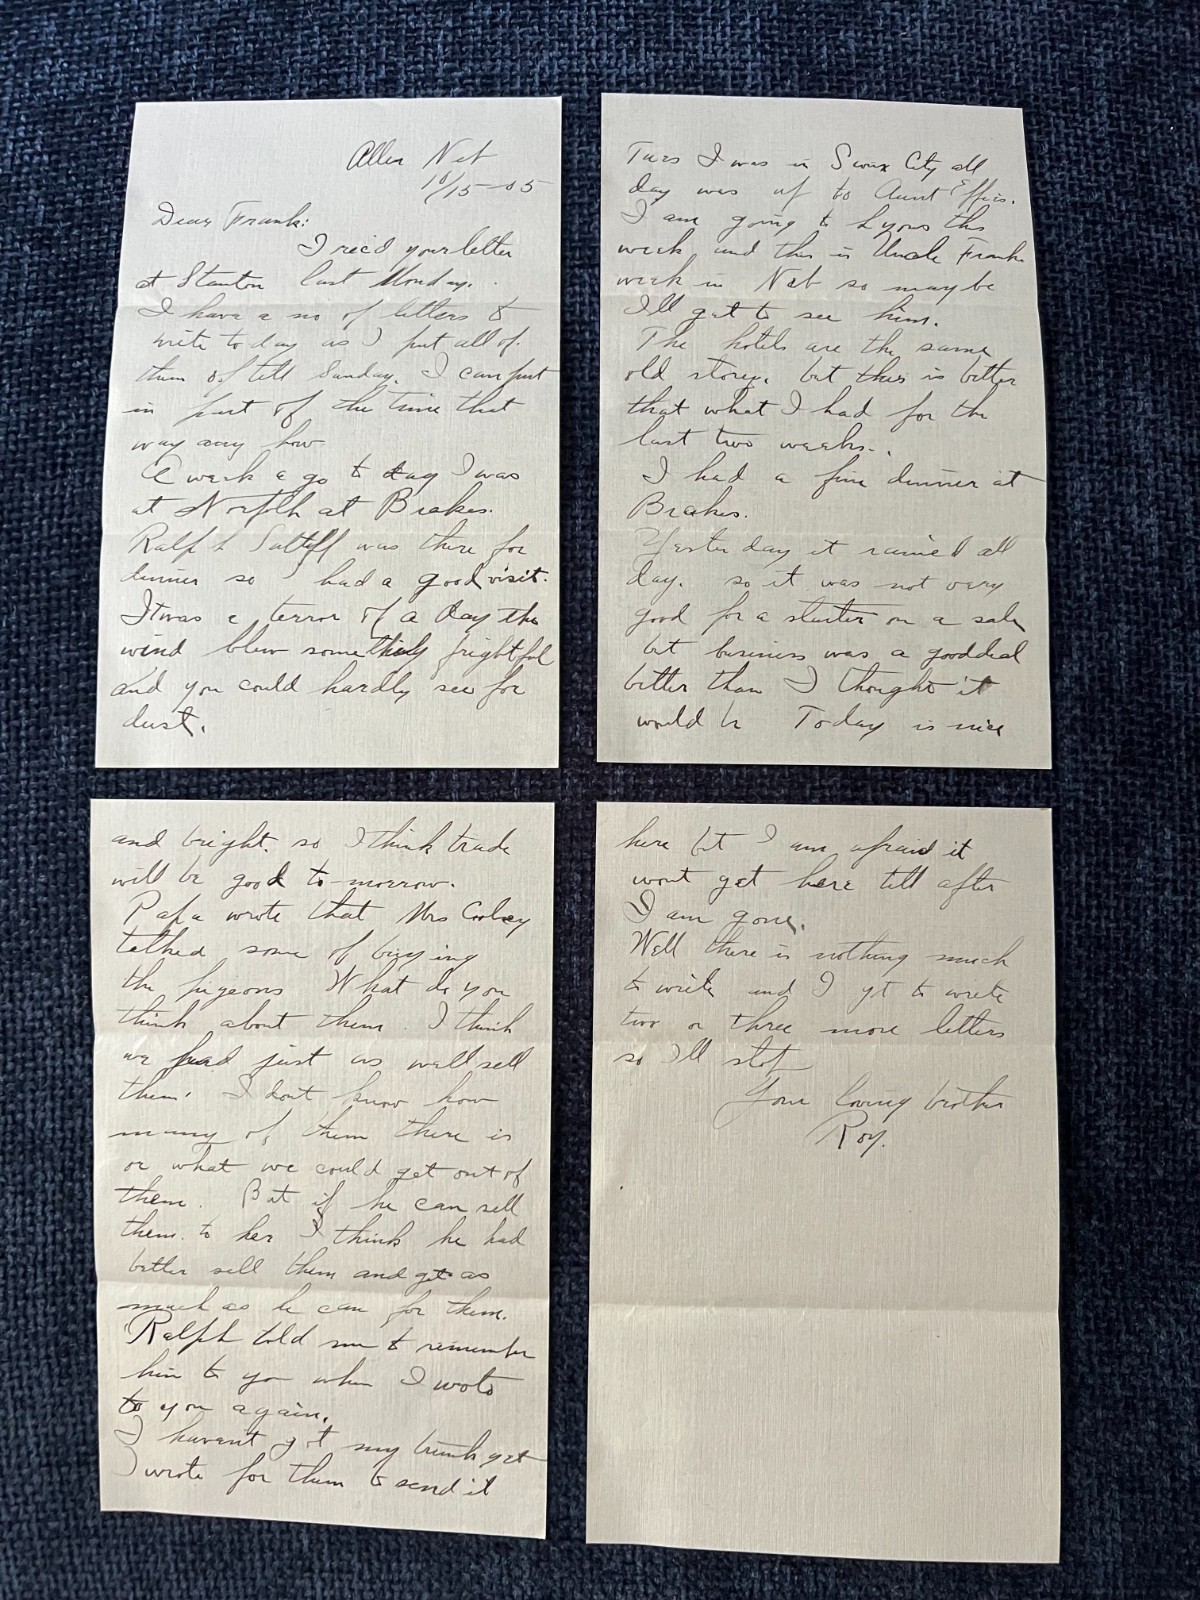 Allen Neb
10/15-05
Dear Frank:
I rec'd your letter
at Stanton last Monday.
I have a no of letters to
write to day as I put all of
them of till Sunday. I can put
in part of the time that
way any how
A week a go to day I was
at Norfolk at Brakes.
Ralph Sutliff was there for
dinner so I had a good visit.
It was a terror of a day the
wind blew something frightful
and you could hardly see for
dust.
Tues I was in Sioux City all
day was up to Aunt Effies.
I am going to Lyons this
week and this is Uncle Franks
week in Neb so may be
Ill get to see him.
The hotels are the same
old story. but this is better
that what I had for the
last two weeks.
I had a fine dinner at
Brakes.
Yesterday it rained all
day. so it was not very
good for a starter on a sale
but business was a good deal
better than I thought it
would be Today is nice
and bright. so I think trade
will be good to-morrow.
Papa wrote that Mrs Cooley
talked some of buying
the pigeons What do you
think about them. I think
we had just as well sell
them. I dont know how
many of them there is
or what we could get out of
them. But if he can sell
them. to her I think he had
better sell them and get as
much as he can for them.
Ralph told me to remember
him to you when I wote
to you again.
I havent got my trunk yet
I wrote for them to send it
here but I am afraid it
wont get here till after
I am gone.
Well there is nothing much
to write and I got to write
two or three more letters
so Ill stop
Your loving brother
Roy.